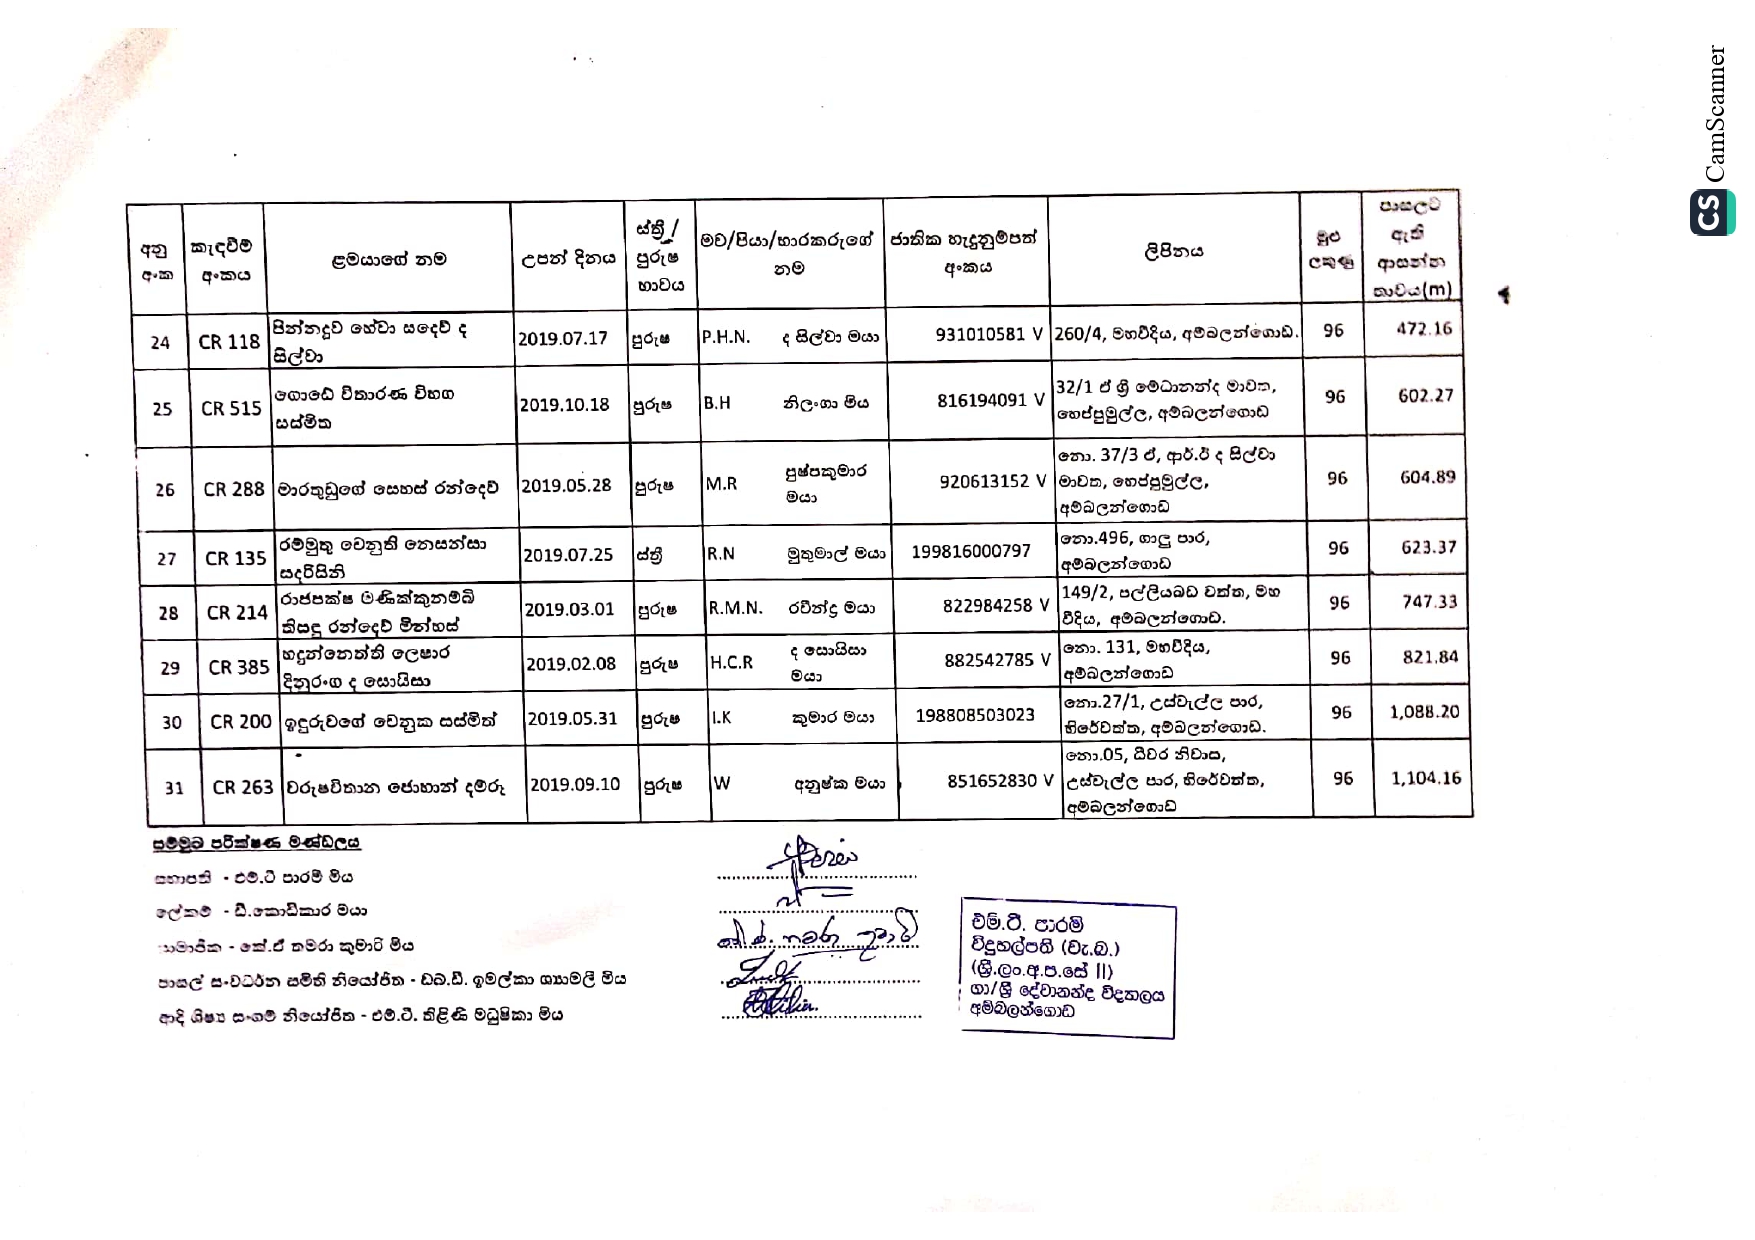 CamScanner
CS
අනු අංක | කැඳවීම් අංකය | ළමයාගේ නම | උපන් දිනය | ස්ත්‍රී / පුරුෂ භාවය | මව/පියා/භාරකරුගේ නම | ජාතික හැඳුනුම්පත් අංකය | ලිපිනය | මුළු ලකුණු | පාසලට ඇති ආසන්න තාවය(m)
24 | CR 118 | පින්නදූව හේවා සදෙව් ද සිල්වා | 2019.07.17 | පුරුෂ | P.H.N. ද සිල්වා මයා | 931010581 V | 260/4, මහවීදිය, අම්බලන්ගොඩ. | 96 | 472.16
25 | CR 515 | ගොඩේ විතාරණ විහග සස්මිත | 2019.10.18 | පුරුෂ | B.H නිලංගා මිය | 816194091 V | 32/1 ඒ ශ්‍රී මේධානන්ද මාවත, හෙප්පුමුල්ල, අම්බලන්ගොඩ | 96 | 602.27
26 | CR 288 | මාරකුඩුගේ සෙහස් රන්දෙව් | 2019.05.28 | පුරුෂ | M.R පුෂ්පකුමාර මයා | 920613152 V | නො. 37/3 ඒ, ආර්.ඊ ද සිල්වා මාවත, හෙප්පුමුල්ල, අම්බලන්ගොඩ | 96 | 604.89
27 | CR 135 | රම්මුතු වෙනුති නෙසන්සා සඳරිසිනි | 2019.07.25 | ස්ත්‍රී | R.N මුතුමාල් මයා | 199816000797 | නො.496, ගාලු පාර, අම්බලන්ගොඩ | 96 | 623.37
28 | CR 214 | රාජපක්ෂ මණික්කුනම්බි තිසඳු රන්දෙව් මින්හස් | 2019.03.01 | පුරුෂ | R.M.N. රවීන්ද්‍ර මයා | 822984258 V | 149/2, පල්ලියබඩ වත්ත, මහ වීදිය, අම්බලන්ගොඩ. | 96 | 747.33
29 | CR 385 | හඳුන්නෙත්ති ලෙෂාර දිනුරංග ද සොයිසා | 2019.02.08 | පුරුෂ | H.C.R ද සොයිසා මයා | 882542785 V | නො. 131, මහවීදිය, අම්බලන්ගොඩ | 96 | 821.84
30 | CR 200 | ඉඳුරුවගේ වෙනුක සස්මිත් | 2019.05.31 | පුරුෂ | I.K කුමාර මයා | 198808503023 | නො.27/1, උස්වැල්ල පාර, හිරේවත්ත, අම්බලන්ගොඩ. | 96 | 1,088.20
31 | CR 263 | වරුෂවිතාන ජොහාන් දම්රූ | 2019.09.10 | පුරුෂ | W අනුෂ්ක මයා | 851652830 V | නො.05, ධීවර නිවාස, උස්වැල්ල පාර, හිරේවත්ත, අම්බලන්ගොඩ | 96 | 1,104.16
සම්මුඛ පරීක්ෂණ මණ්ඩලය
සභාපති - එම්.ටී පාරමි මිය
ලේකම් - ඩී.කොඩිකාර මයා
සාමාජික - කේ.ඒ තමරා කුමාරි මිය
පාසල් සංවර්ධන සමිති නියෝජිත - ඩබ්.ඩී. ඉමල්කා ශ්‍යාමලී මිය
ආදි ශිෂ්‍ය සංගම් නියෝජිත - එම්.ටී. තිළිණි මධුෂිකා මිය
එම්.ටී. පාරමි
විදුහල්පති (වැ.බ.)
(ශ්‍රී.ලං.අ.ප.සේ II)
ගා/ශ්‍රී දේවානන්ද විද්‍යාලය
අම්බලන්ගොඩ